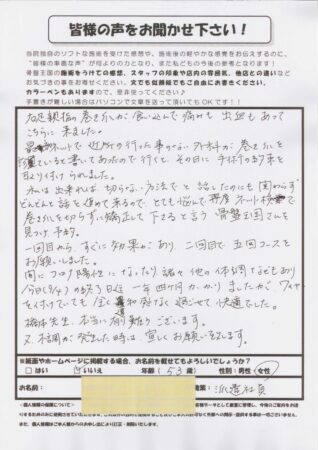 皆様の声をお聞かせ下さい！
当院独自のソフトな施術を受けた感想や、施術後の軽やかな感覚をお伝えするのに、
"皆様の率直な声"が何よりの力となり、また私どもの今後の参考となります！
骨盤王国の施術をうけての感想、スタッフの印象や店内の雰囲気、他店との違いなど
お気づきの事をお寄せください。文でも似顔絵でもご自由にお書きください。
カラーペンもありますので、是非使ってください♪
手書きが難しい場合はパソコンで文章を送って頂いてもOKです！！
右足親指の巻きが食い込んで痛みも出血もあって
こちらに来ました。
ネットで近所の行った事のない外科が巻き爪を
と書いてあったので行くと、その日に手術の約束を
取り付けられました。
私は出来れば切らない方法でと話したのにも関わらず
どんどん話を進めて来るので、とても悩んで再度ネット検索で
巻き爪を切らずに矯正して下さると言う骨盤王国さんを
見つけ予約。
一回目から、すぐに効果があり、二回目で五回コースを
お願いしました。
間にコロナ陽性になったり、諸々他の体調などもあり
今日の終う日迄一年四ヶ月かかりましたが、ワイヤー
を付けていても全く違和感なく過ごせて快適でした。
先生、本当に有難うございます。
又、不調が発生した時は宜しくお願い致します。
※紙面やホームページに掲載する場合、お名前を載せてもよろしいでしょうか？
□はい ☑いいえ 年齢（53歳） 性別：男性・女性
お名前： 業：派遣社員